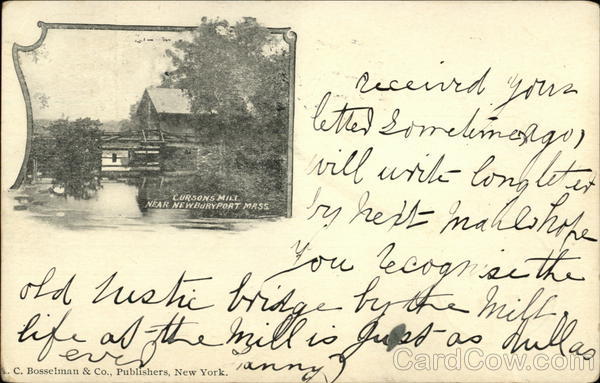 CURSONS MILL
NEAR NEWBURYPORT MASS.
received your
letter sometime ago,
will write long letter
by next mail hope
you recognise the
old rustic bridge by the Mill.
life at the Mill is just as dull as
ever Fanny
A. C. Bosselman & Co., Publishers, New York.
CardCow.com